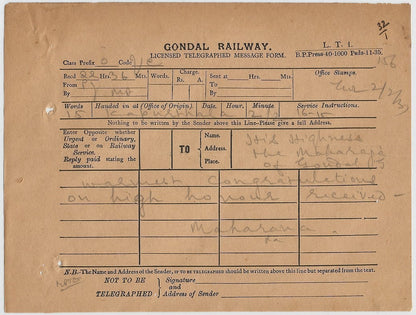 32/1
GONDAL RAILWAY.
LICENSED TELEGRAPHED MESSAGE FORM.
L. T. 1.
B.P.Press-40-1000 Pads-11-35.
156
Class Prefix O Code
Recd. 22 Hrs. 36 Ms. Words. Charge. Rs. A. Sent at Hrs. Ms. Office Stamps.
From To
By By
Words Handed in at (Office of Origin). Date. Hour. Minute. Service Instructions.
15 16-15
Nothing to be written by the Sender above this Line-Please give a full Address.
Enter Opposite whether
Urgent or Ordinary,
State or on Railway
Service.
Reply paid stating the
amount.
TO
Name.
Address.
His Highness
The Maharaja
of Gondal
Warmest Congratulations
on high honour received -
Maharana
N.B.-The Name and Address of the Sender, IF TO BE TELEGRAPHED should be written above this line but separated from the text.
NOT TO BE
TELEGRAPHED
Signature
and
Address of Sender